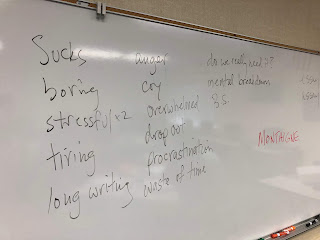 Sucks
boring
stressful x2
tiring
long writing
angry
cry
overwhelmed
drop out
procrastination
waste of time
do we really need it?
mental breakdown
S.S.
MONTAIGNE